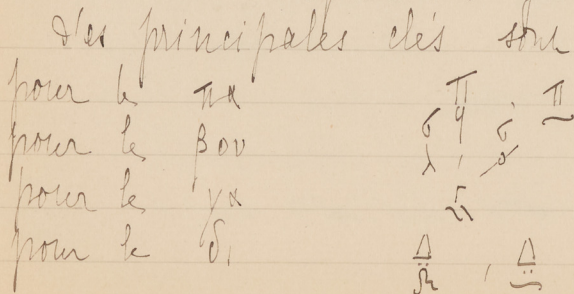 Les principales clés sont
pour le πα
pour le βου
pour le γα
pour le δι